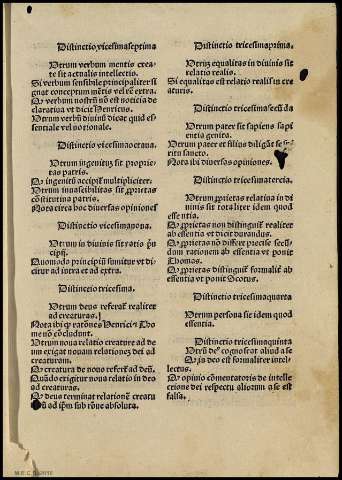 Distinctio vicesimaseptima
Utrum verbum mentis crea-
te sit actualis intellectio.
Si verbum sensibile principaliter si
gnat conceptum mētis vel rē extra.
Qȝ verbum nostrū nō est noticia de
clarativa vt dicit Henricus.
Utrum verbū divinū dicat quid es-
sentiale vel notionale.
Distinctio vicesimaoctava.
Utrum ingenitus sit proprie-
tas patris.
Qȝ ingenitū accipit multipliciter.
Utrum innascibilitas sit ꝓprietas
constitutiva patris.
Nota circa hoc diversas opiniones
Distinctio vicesimanona.
Utrum in divinis sit ratio prin
cipij.
Quomodo principiū sumitur vt di-
citur ad intra et ad extra.
Distinctio tricesima.
Utrum deus referat realiter
ad creaturas.
Nota ibi qȝ rationes Henrici et Tho
me nō cōcludunt.
Utrum nova relatio creature ad de
um exigat novam relationez dei ad
creaturam.
Qȝ creatura de novo refert ad deū.
Quādo exigitur nova relatio in deo
ad creaturas.
Qȝ deus terminat relationē creatu
ad ipm sub rōne absoluta.
Distinctio tricesimaprima.
Utrum equalitas in divinis sit
relatio realis.
Si equalitas est relatio realis in cre
aturis.
Distinctio tricesimasecūda
Utrum pater sit sapiens sapi
entia genita.
Utrum pater et filius diligāt se
ritu sancto.
Nota ibi diversas opiniones.
Distinctio tricesimatercia.
Utrum ꝓprietas relativa in di
vinis sit totaliter idem quod
essentia.
Qȝ ꝓprietas non distinguit realiter
ab essentia vt dicit durandus.
Qȝ ꝓprietas nō differt precise secū-
dum rationem ab essentia vt ponit
Thomas.
Qȝ ꝓprietas distinguit formalit̄ ab
essentia vt ponit Scotus.
Distinctio tricesimaquarta
Utrum persona sit idem quod
essentia.
Distinctio tricesimaquinta
Utrū deꝰ cognoscat aliud a se
Qȝ in deo est formaliter intel-
lectus.
Qȝ opinio cōmentatoris de intelle-
ctione dei respectu aliorum a se est
falsa.